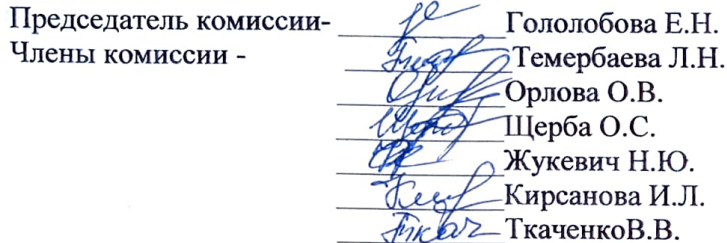 Председатель комиссии- Гололобова Е.Н.
Члены комиссии - Темербаева Л.Н.
Орлова О.В.
Щерба О.С.
Жукевич Н.Ю.
Кирсанова И.Л.
ТкаченкоВ.В.